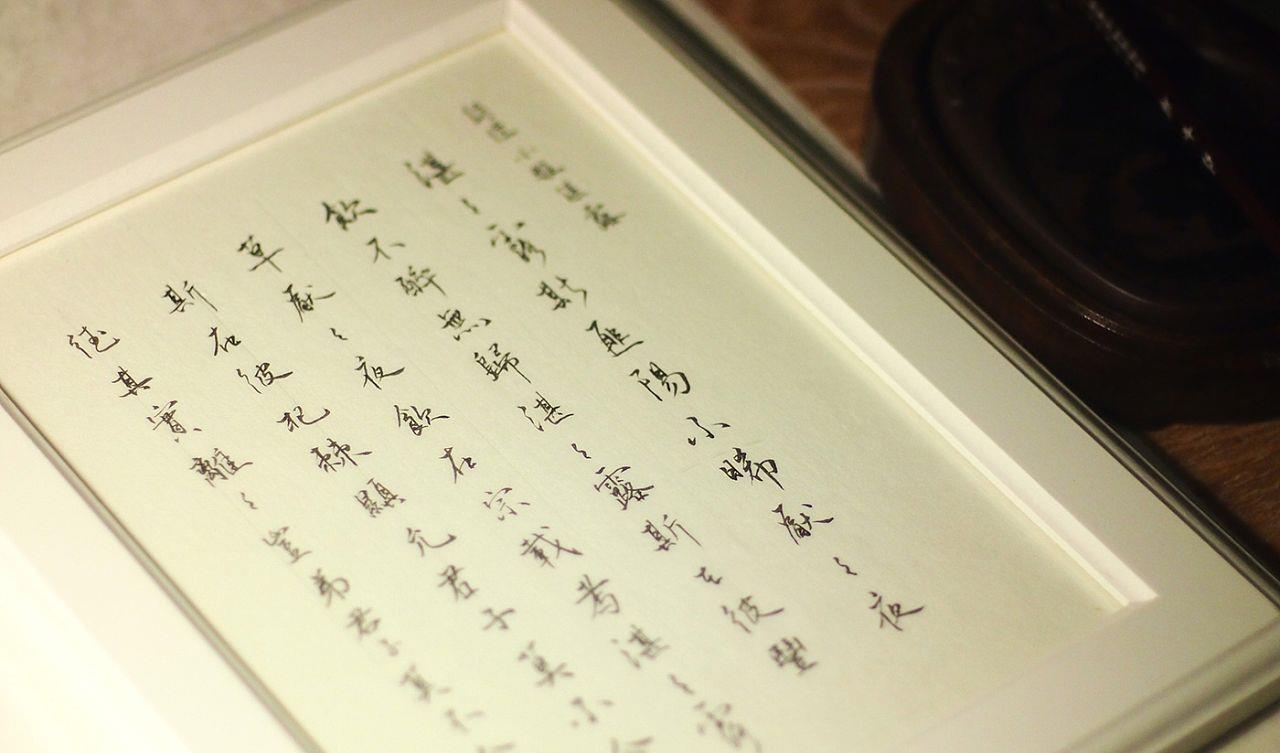 詩經小雅湛露
湛〻露斯匪陽不晞厭〻夜
飲不醉無歸湛〻露斯在彼豐
草厭〻夜飲在宗載考湛〻露
斯在彼杞棘顯允君子莫不令
德其實離〻豈弟君子莫不